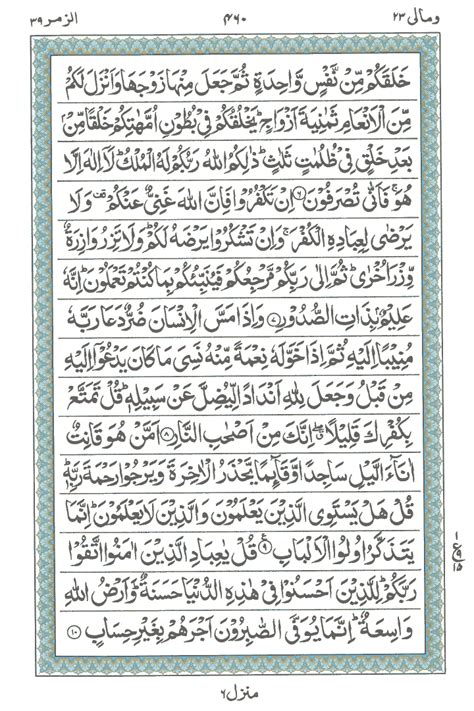 ومالی ٢٣
٤٦٠
الزمر ٣٩
خَلَقَكُمْ مِّنْ نَّفْسٍ وَّاحِدَةٍ ثُمَّ جَعَلَ مِنْهَا زَوْجَهَا وَاَنْزَلَ لَكُمْ
مِّنَ الْاَنْعَامِ ثَمٰنِيَةَ اَزْوَاجٍ ؕ يَخْلُقُكُمْ فِيْ بُطُوْنِ اُمَّهٰتِكُمْ خَلْقًا مِّنْۢ
بَعْدِ خَلْقٍ فِيْ ظُلُمٰتٍ ثَلٰثٍ ؕ ذٰلِكُمُ اللّٰهُ رَبُّكُمْ لَهُ الْمُلْكُ ؕ لَاۤ اِلٰهَ اِلَّا
هُوَ ۚ فَاَنّٰى تُصْرَفُوْنَ ﴿٦﴾ اِنْ تَكْفُرُوْا فَاِنَّ اللّٰهَ غَنِيٌّ عَنْكُمْ ۟ وَلَا
يَرْضٰى لِعِبَادِهِ الْكُفْرَ ۚ وَاِنْ تَشْكُرُوْا يَرْضَهُ لَكُمْ ؕ وَلَا تَزِرُ وَازِرَةٌ
وِّزْرَ اُخْرٰى ؕ ثُمَّ اِلٰى رَبِّكُمْ مَّرْجِعُكُمْ فَيُنَبِّئُكُمْ بِمَا كُنْتُمْ تَعْمَلُوْنَ ؕ اِنَّهٗ
عَلِيْمٌۢ بِذَاتِ الصُّدُوْرِ ﴿٧﴾ وَاِذَا مَسَّ الْاِنْسَانَ ضُرٌّ دَعَا رَبَّهٗ
مُنِيْبًا اِلَيْهِ ثُمَّ اِذَا خَوَّلَهٗ نِعْمَةً مِّنْهُ نَسِيَ مَا كَانَ يَدْعُوْۤا اِلَيْهِ
مِنْ قَبْلُ وَجَعَلَ لِلّٰهِ اَنْدَادًا لِّيُضِلَّ عَنْ سَبِيْلِهٖ ؕ قُلْ تَمَتَّعْ
بِكُفْرِكَ قَلِيْلًا ۖ اِنَّكَ مِنْ اَصْحٰبِ النَّارِ ﴿٨﴾ اَمَّنْ هُوَ قَانِتٌ
اٰنَآءَ الَّيْلِ سَاجِدًا وَّقَآئِمًا يَّحْذَرُ الْاٰخِرَةَ وَيَرْجُوْا رَحْمَةَ رَبِّهٖ ؕ
قُلْ هَلْ يَسْتَوِي الَّذِيْنَ يَعْلَمُوْنَ وَالَّذِيْنَ لَا يَعْلَمُوْنَ ؕ اِنَّمَا
يَتَذَكَّرُ اُولُوا الْاَلْبَابِ ﴿٩﴾ قُلْ يٰعِبَادِ الَّذِيْنَ اٰمَنُوا اتَّقُوْا
رَبَّكُمْ ؕ لِلَّذِيْنَ اَحْسَنُوْا فِيْ هٰذِهِ الدُّنْيَا حَسَنَةٌ ؕ وَاَرْضُ اللّٰهِ
وَاسِعَةٌ ؕ اِنَّمَا يُوَفَّى الصّٰبِرُوْنَ اَجْرَهُمْ بِغَيْرِ حِسَابٍ ﴿١٠﴾
١
ع
٩
١٥
منزل ٦